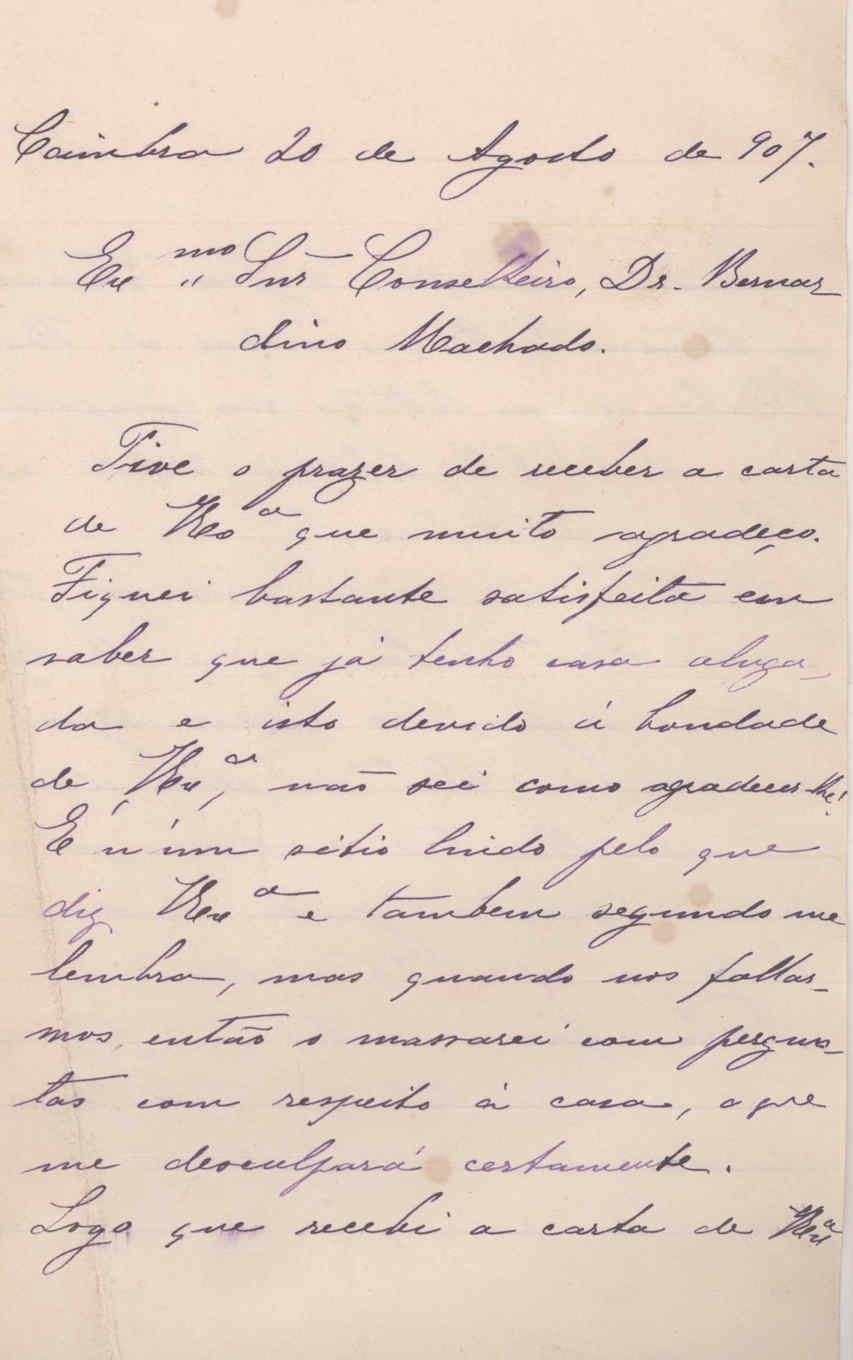 Coimbra 20 de Agosto de 907.
Exmo Snr Conselheiro, Dr. Bernar
dino Machado.
Tive o prazer de receber a carta
de VExa que muito agradeço.
Fiquei bastante satisfeita em
saber que já tenho casa aluga-
da e isto devido á bondade
de VExa, não sei como agradecer-lhe!
É n'um sitio lindo pelo que
diz VExa e tambem segundo me
lembra, mas quando nos fallar-
mos, então o massarei com pergun-
tas com respeito á casa, o que
me desculpará certamente.
Logo que recebi a carta de VExa